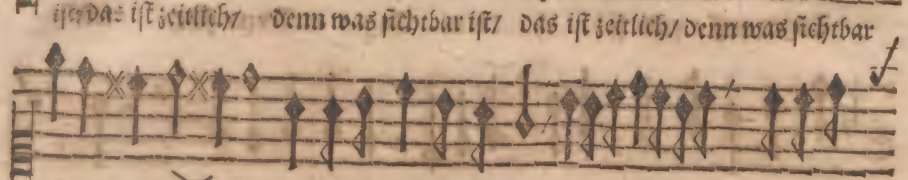 ist/ das ist zeitlich/ denn was sichtbar ist/ das ist zeitlich/ denn was sichtbar